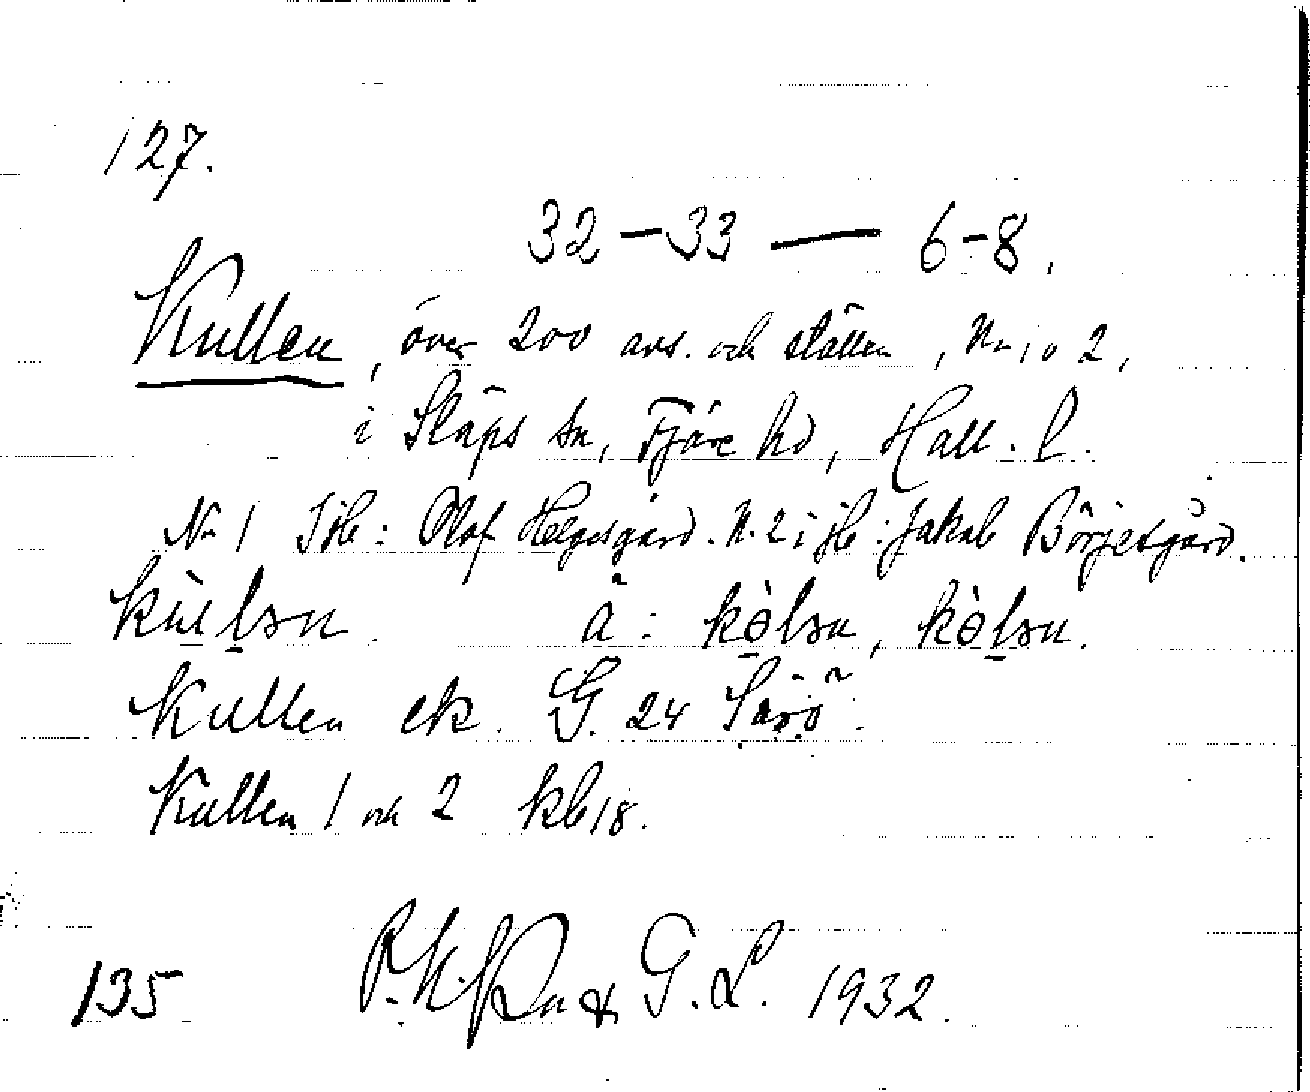 127.
32-33 — 6-8.
Kullen, över 200 avs. och ställen, Nr 1 o 2,
i Släps sn, Fjäre hd, Hall. l.
Nr 1 Jb: Olof Helgesgård. N. 2 i jb: Jakob Börjesgård.
Kullen ek. G. 24 Särö.
Kullen 1 och 2 kb 18.
135 G. L. 1932.